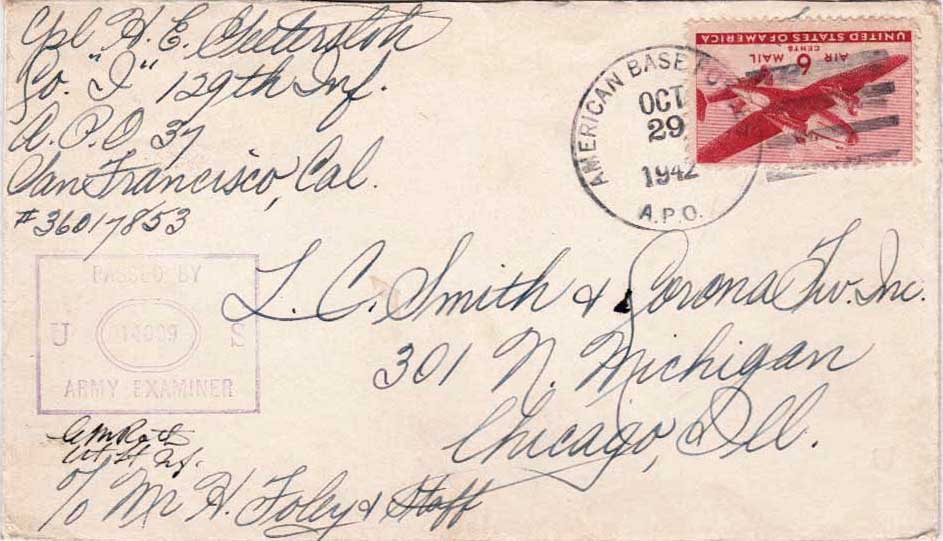 Cpl H. E.
Co. "I" 129th Inf.
A.P.O 37
San Francisco, Cal.
#36017853
UNITED STATES OF AMERICA
6 CENTS
AIR MAIL
AMERICAN BASE
OCT
29
1942
A.P.O.
PASSED BY
U 14009 S
ARMY EXAMINER
L. C. Smith & Corona Tw. Inc.
301 N. Michigan
Chicago, Ill.
Inf.
c/o Mr H. Foley & Staff